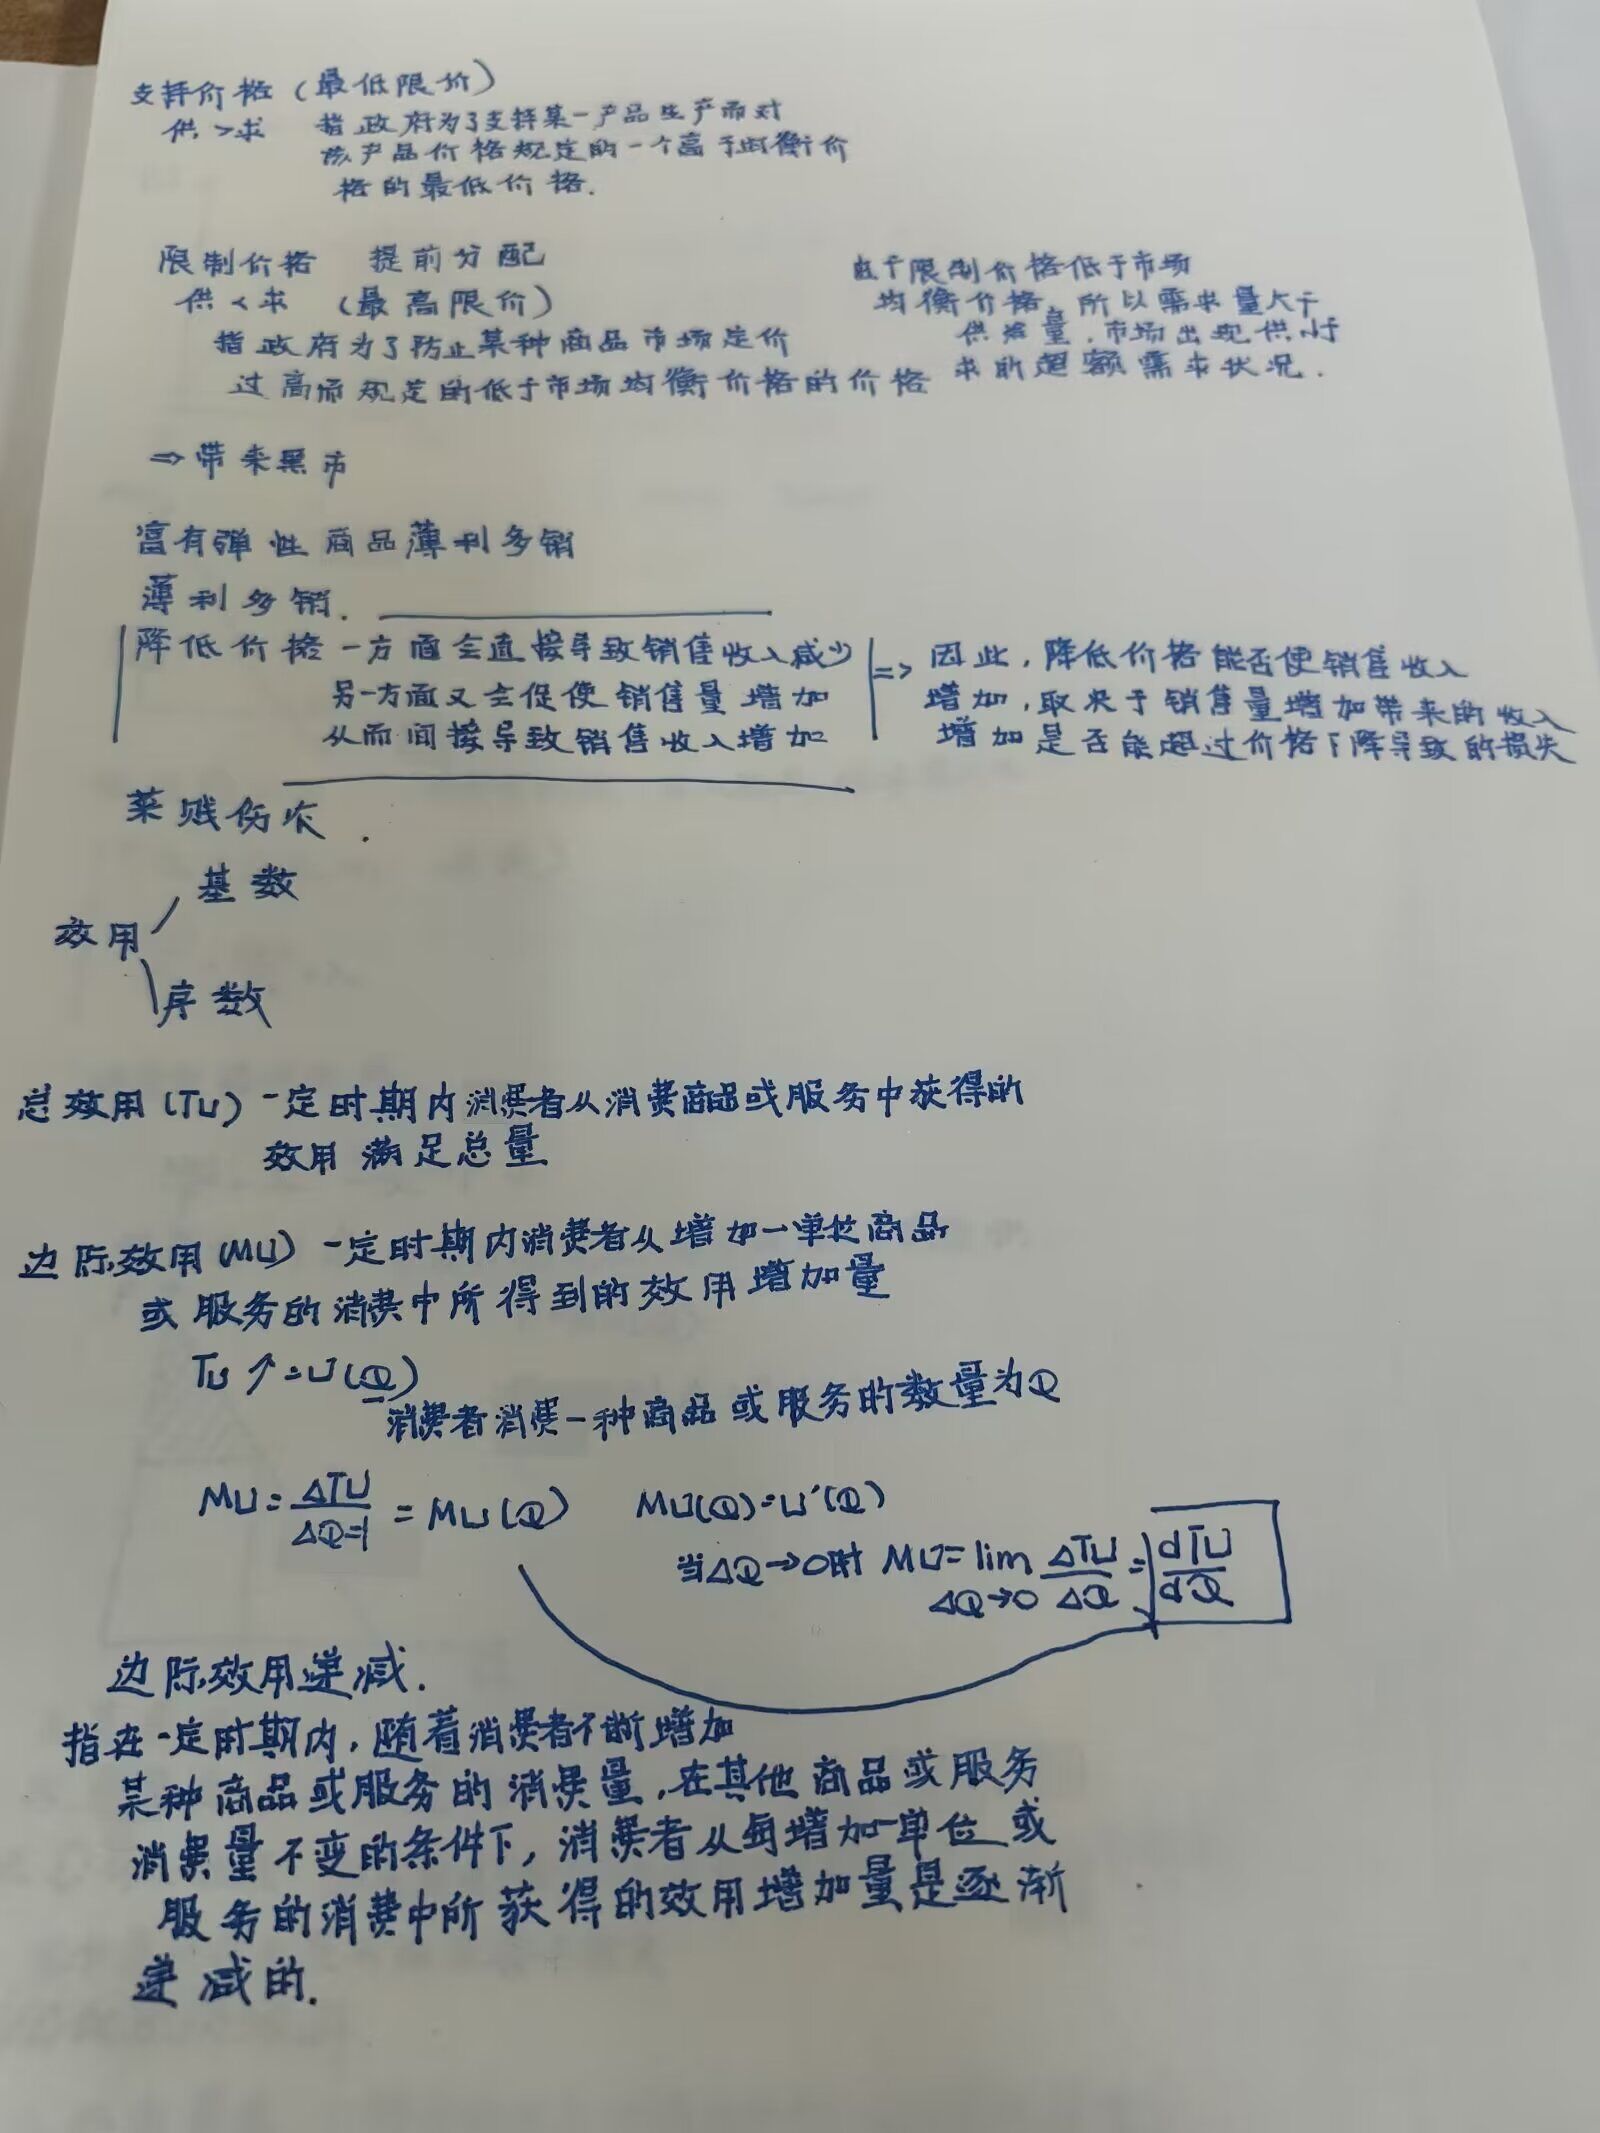 支持价格（最低限价）
供>求 指政府为了支持某一产品生产而对
该产品价格规定的一个高于均衡价
格的最低价格.
限制价格 提前分配
供<求 （最高限价）
指政府为了防止某种商品市场定价
过高而规定的低于市场均衡价格的价格
由于限制价格低于市场
均衡价格,所以需求量大于
供给量,市场出现供小于
求的超额需求状况.
⇒带来黑市
富有弹性商品薄利多销
薄利多销.
降低价格一方面会直接导致销售收入减少
另一方面又会促使销售量增加
从而间接导致销售收入增加
=> 因此,降低价格能否使销售收入
增加,取决于销售量增加带来的收入
增加是否能超过价格下降导致的损失
菜贱伤农.
基数
效用
序数
总效用(TU) 一定时期内消费者从消费商品或服务中获得的
效用满足总量
边际效用(MU) 一定时期内消费者从增加一单位商品
或服务的消费中所得到的效用增加量
TU↑=U(Q)
消费者消费一种商品或服务的数量为Q
MU=ΔTU/ΔQ=1=MU(Q) MU(Q)=U'(Q)
当ΔQ→0时 MU=lim ΔQ→0 ΔTU/ΔQ=dTU/dQ
边际效用递减.
指在一定时期内,随着消费者不断增加
某种商品或服务的消费量,在其他商品或服务
消费量不变的条件下,消费者从每增加一单位或
服务的消费中所获得的效用增加量是逐渐
递减的.